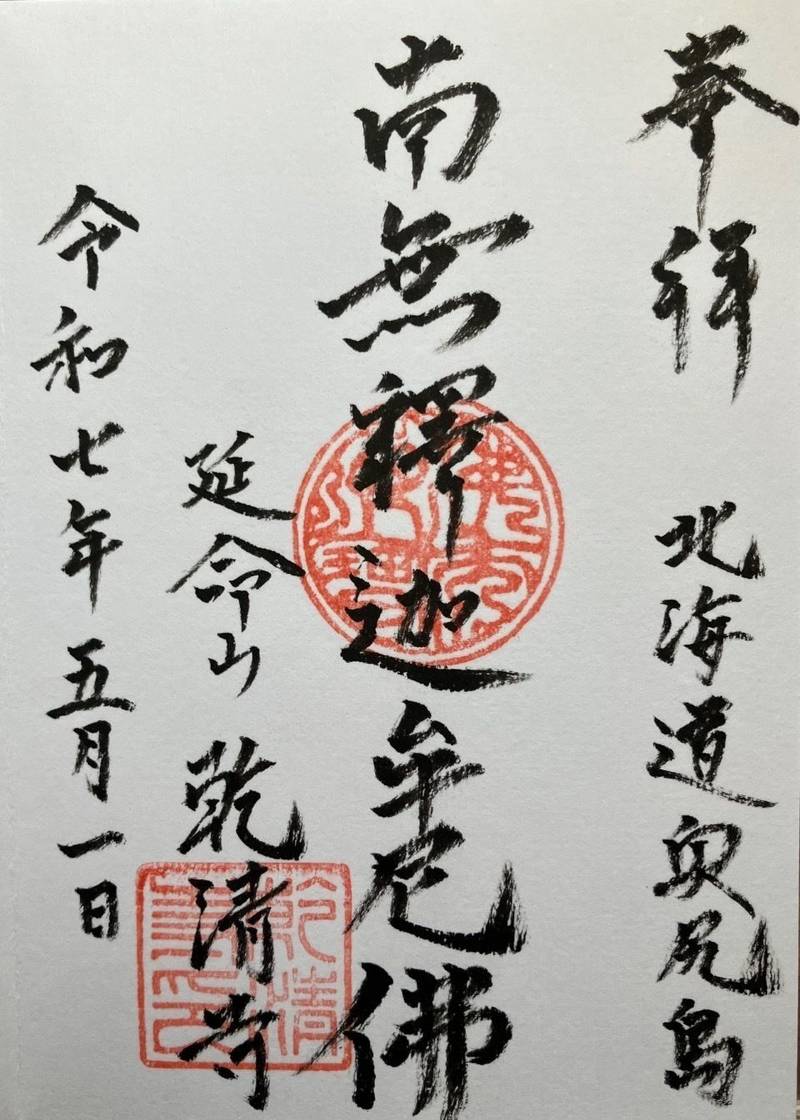 奉拝
北海道奥尻島
南無釋迦牟尼佛
延命山 乾清寺
令和七年五月一日